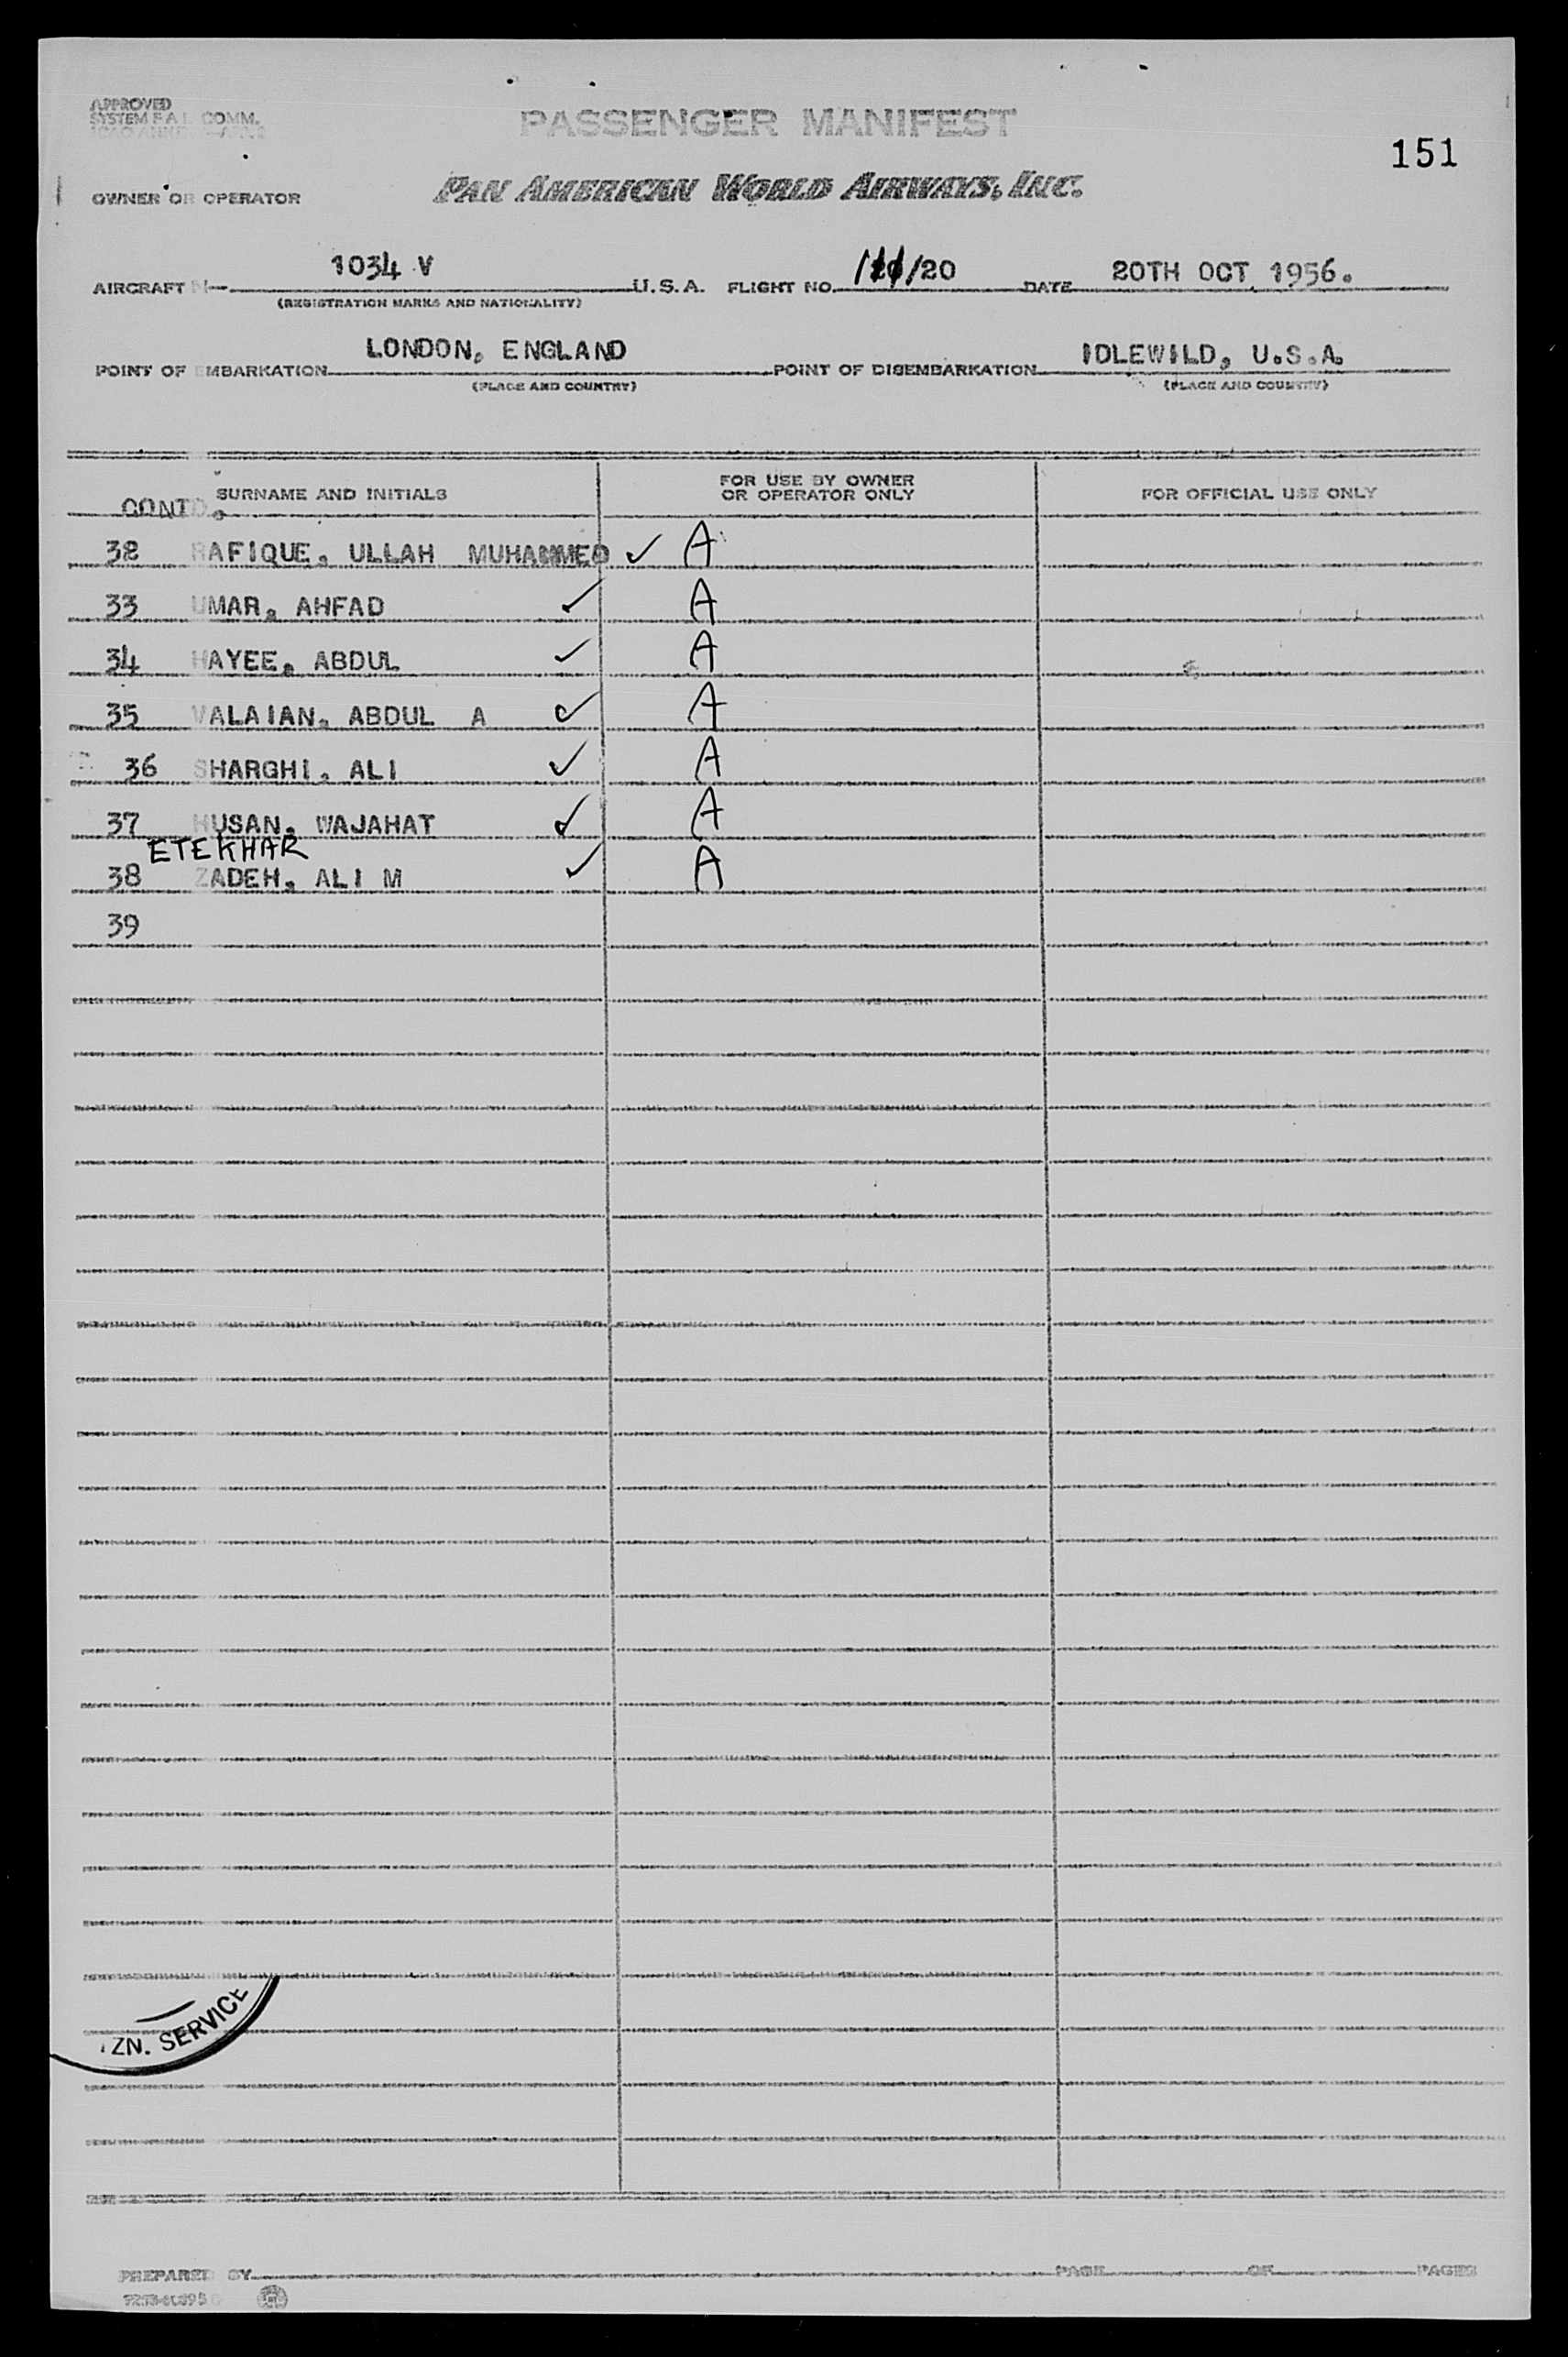 APPROVED
SYSTEM F.A.L. COMM.
PASSENGER MANIFEST
151
OWNER OR OPERATOR PAN AMERICAN WORLD AIRWAYS, INC.
AIRCRAFT N- 1034 V U.S.A. FLIGHT NO. /20 DATE 20TH OCT 1956.
(REGISTRATION MARKS AND NATIONALITY)
POINT OF EMBARKATION LONDON, ENGLAND POINT OF DISEMBARKATION IDLEWILD, U.S.A.
(PLACE AND COUNTRY) (PLACE AND COUNTRY)
SURNAME AND INITIALS FOR USE BY OWNER OR OPERATOR ONLY FOR OFFICIAL USE ONLY
CONTD.
32 RAFIQUE, ULLAH MUHAMMED ✓ A
33 UMAR, AHFAD ✓ A
34 HAYEE, ABDUL ✓ A
35 VALAIAN, ABDUL A ✓ A
36 SHARGHI, ALI ✓ A
37 HUSAN, WAJAHAT ✓ A
ETEKHAR
38 ZADEH, ALI M ✓ A
39
IZN. SERVICE
PREPARED BY PAGE OF PAGES